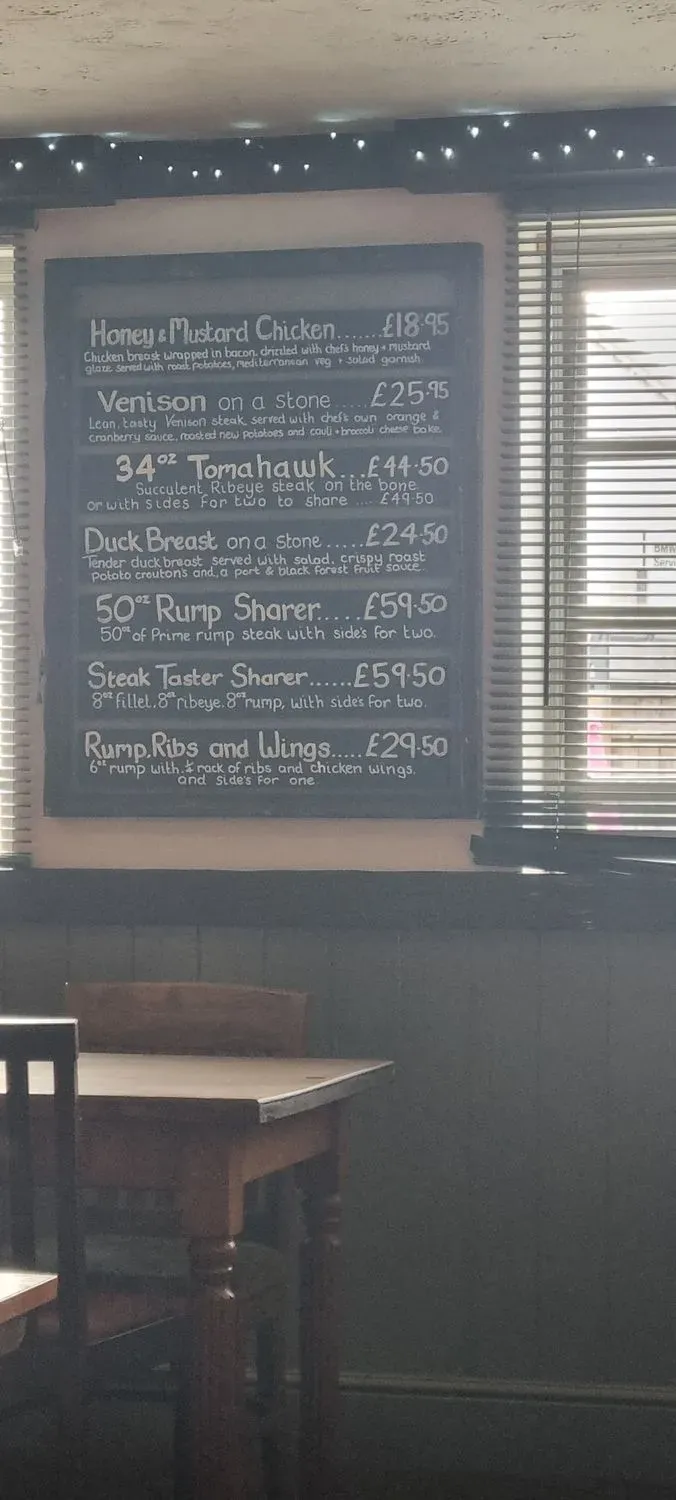 Honey & Mustard Chicken.......£18·95
Chicken breast wrapped in bacon, drizzled with chef's honey + mustard
glaze served with roast potatoes, mediterranean veg + salad garnish
Venison on a stone.....£25·95
Lean, tasty Venison steak served with chef's own orange &
cranberry sauce, roasted new potatoes and cauli + broccoli cheese bake.
34oz Tomahawk...£44·50
Succulent Ribeye steak on the bone
or with sides for two to share .... £49·50
Duck Breast on a stone.....£24·50
Tender duck breast served with salad, crispy roast
potato croutons and, a port & black forest fruit sauce.
50oz Rump Sharer.....£59·50
50oz of Prime rump steak with side's for two.
Steak Taster Sharer......£59·50
8oz fillet, 8oz ribeye, 8oz rump, with side's for two.
Rump, Ribs and Wings.....£29·50
6oz rump with ¼ rack of ribs and chicken wings.
and side's for one
BMW
Servi